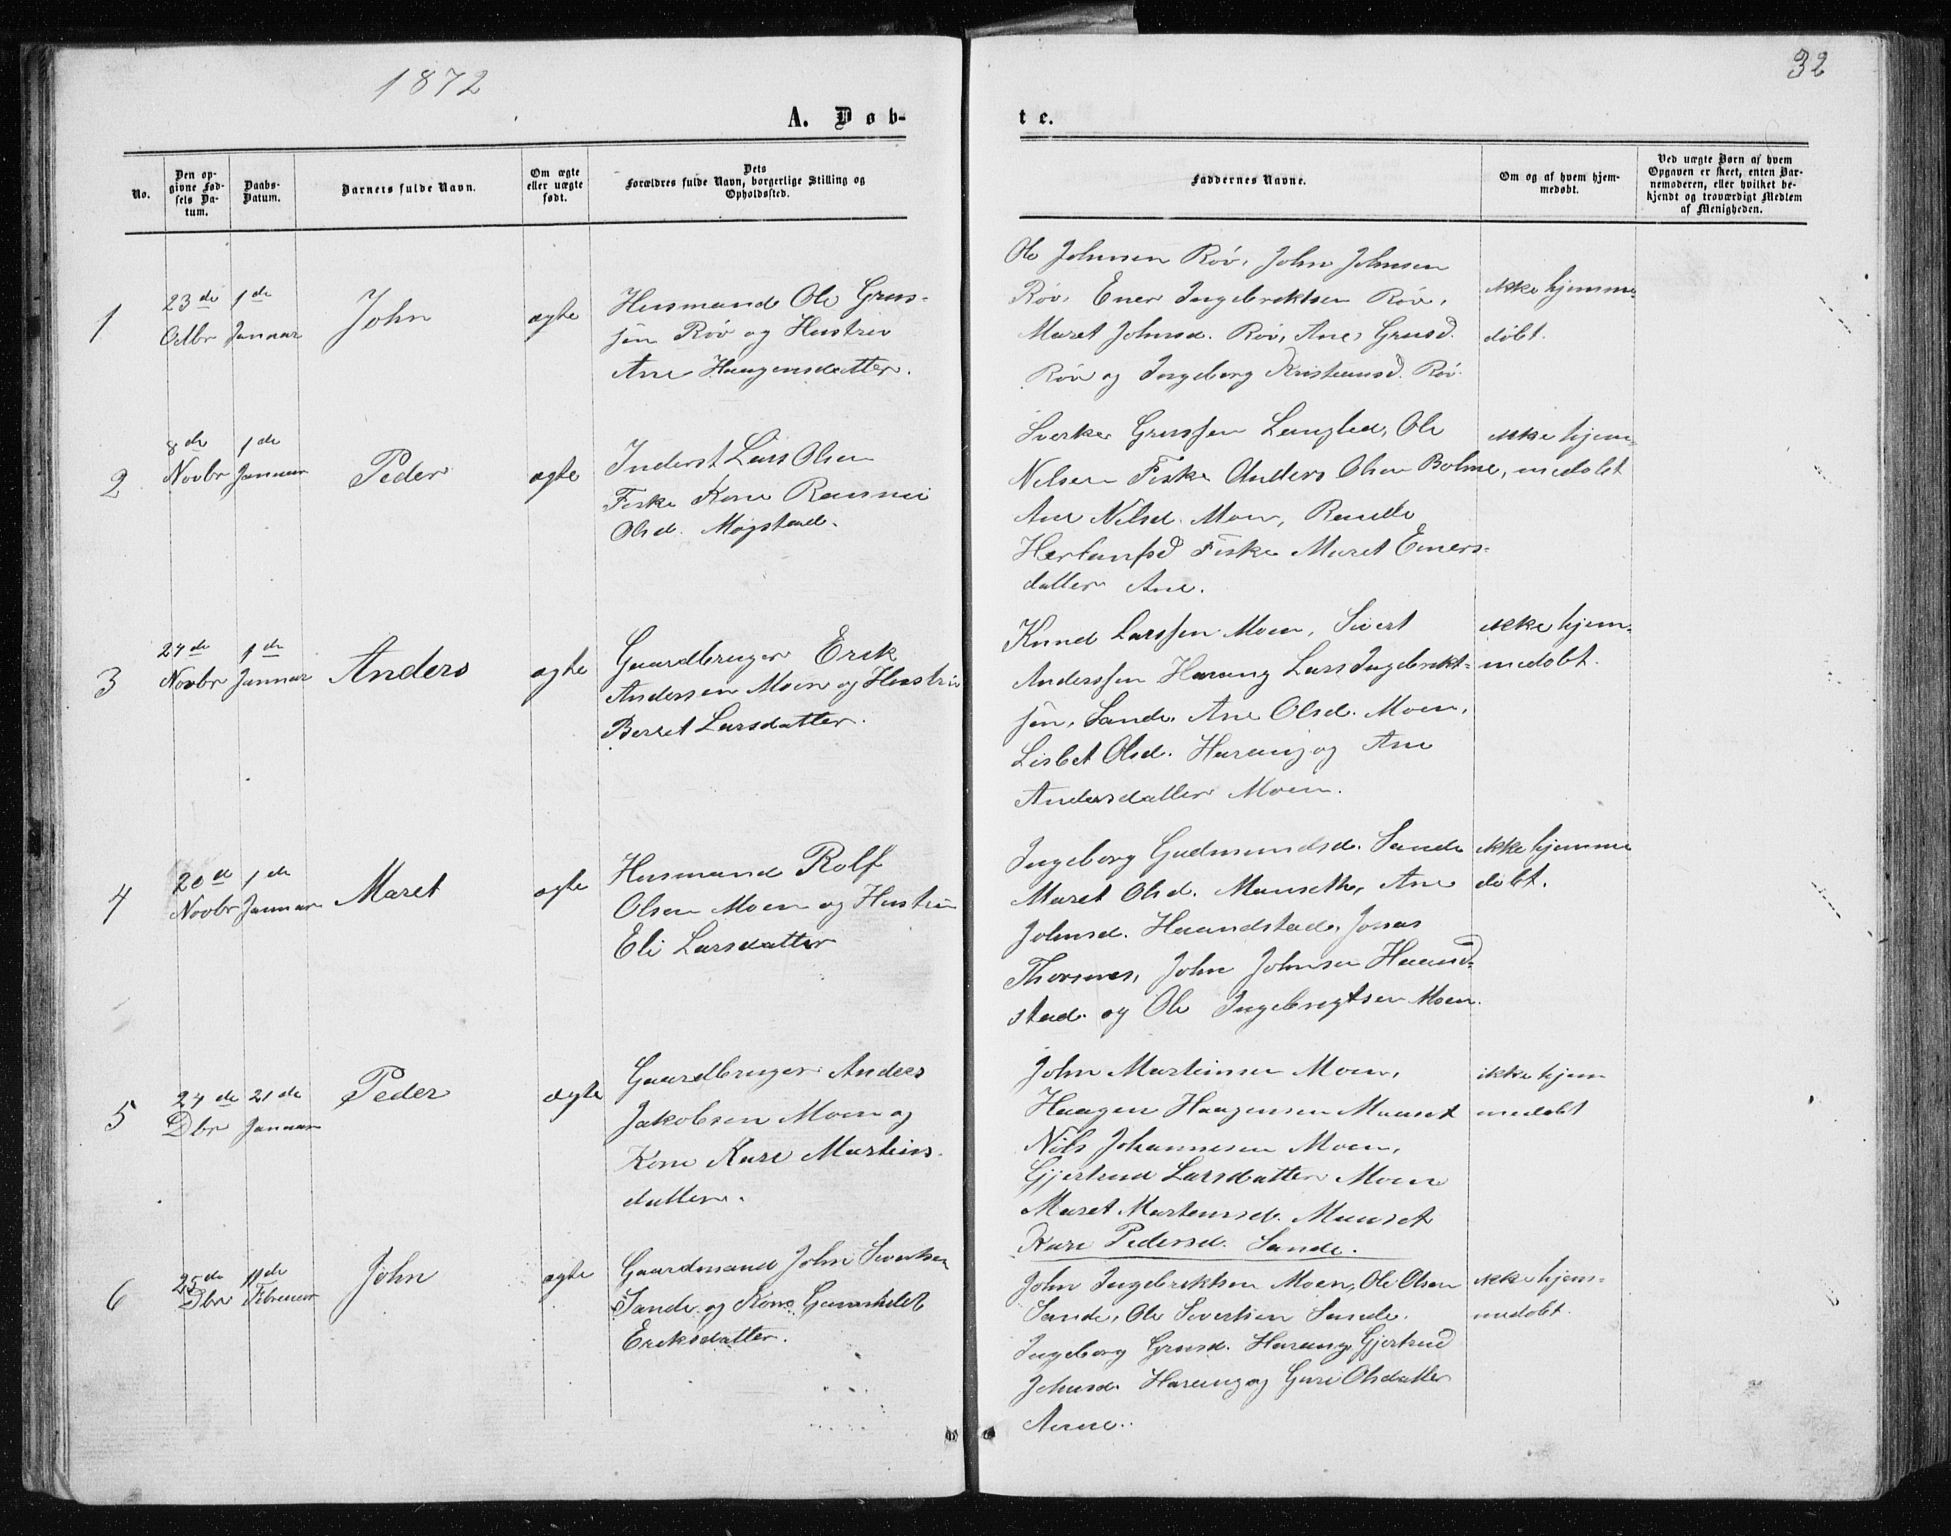 1872
32
A. Døb-
te.
No.
Den op-
givne Fød-
sels Da-
tum.
Daabs-
Datum.
Barnets fulde Navn.
Om ægte
eller uægte
født.
Dets
Forældres fulde Navn, borgerlige Stilling og
Opholdssted.
Faddernes Navne.
Om og af hvem hjem-
medøbt.
Ved uægte Børn af hvem
Opgaven er skeet, enten Bar-
nemoderen, eller hvilket be-
kjendt og troværdigt Medlem
af Menigheden.
1
23de
Octbr
1de
Januar
John
ægte
Husmand Ole Grus-
sen Röv og Hustru
Ane Haagensdatter.
Ole Johnsen Röv, John Johnsen
Röv, Ener Ingebrektsen Röv,
Maret Johnsd. Röv, Ane Grusd.
Röv og Ingeborg Kristiansd. Röv.
ikke hjemme-
döbt.
2
8de
Novbr
1de
Januar
Peder
ægte
Inderst Lars Olsen
Fiske Kone Rannei
Olsd. Mogstad.
Sverke Grussen Langlid, Ole
Nelsen Fiske Anders Olsen Bolme,
Ane Nilsd. Moen, Randi
Fiske Maret Eners-
datter Ane.
ikke hjem-
medobt
3
Novbr
1de
Januar
Anders
ægte
Gaardbruger Erik
Andersen Moen og Hustru
Berret Larsdatter.
Knud Larssen Moen, Sivert
Anderssen Harang Lars Ingebrekt-
sen, Sande, Ane Olsd. Moen,
Lisbet Olsd. Harang og Ane
Andersdatter Moen.
ikke hjem-
medobt.
4
20de
Novbr
1de
Januar
Maret
ægte
Husmand Rolf
Olsen Moen og Hustru
Eli Larsdatter
Ingeborg Gudmundsd. Sande
Maret Olsd. Mauseth, Ane
Johnsd. Haandstad, Jonas
John Johnsen Haand-
stad og Ole Ingebrigtsen Moen.
ikke hjemme
döbt.
5
24de
Dbr
21de
Januar
Peder
ægte
Gaardbruger Anders
Jakobsen Moen og
Kone Kari Martins-
datter.
John Martinsen Moen,
Haagen Haagensen Mauset
Nils Johannesen Moen,
Gjertrud Larsdatter Moen
Maret Martensd. Mauset
Kari Pedersd. Sande.
ikke hjem
medobt
6
25de
Dbr
11de
Februar
John
ægte
Gaardmand John Sivertsen
Sande og Kone Gunhild
Eriksdatter.
John Ingebrektsen Moen, Ole Olsen
Sande, Ole Sivertsen Sande.
Ingeborg Grusd. Harang, Gjertrud
Johnsd. Harang og Guri Olsdatter
Aune.
ikke hjem-
medobt.